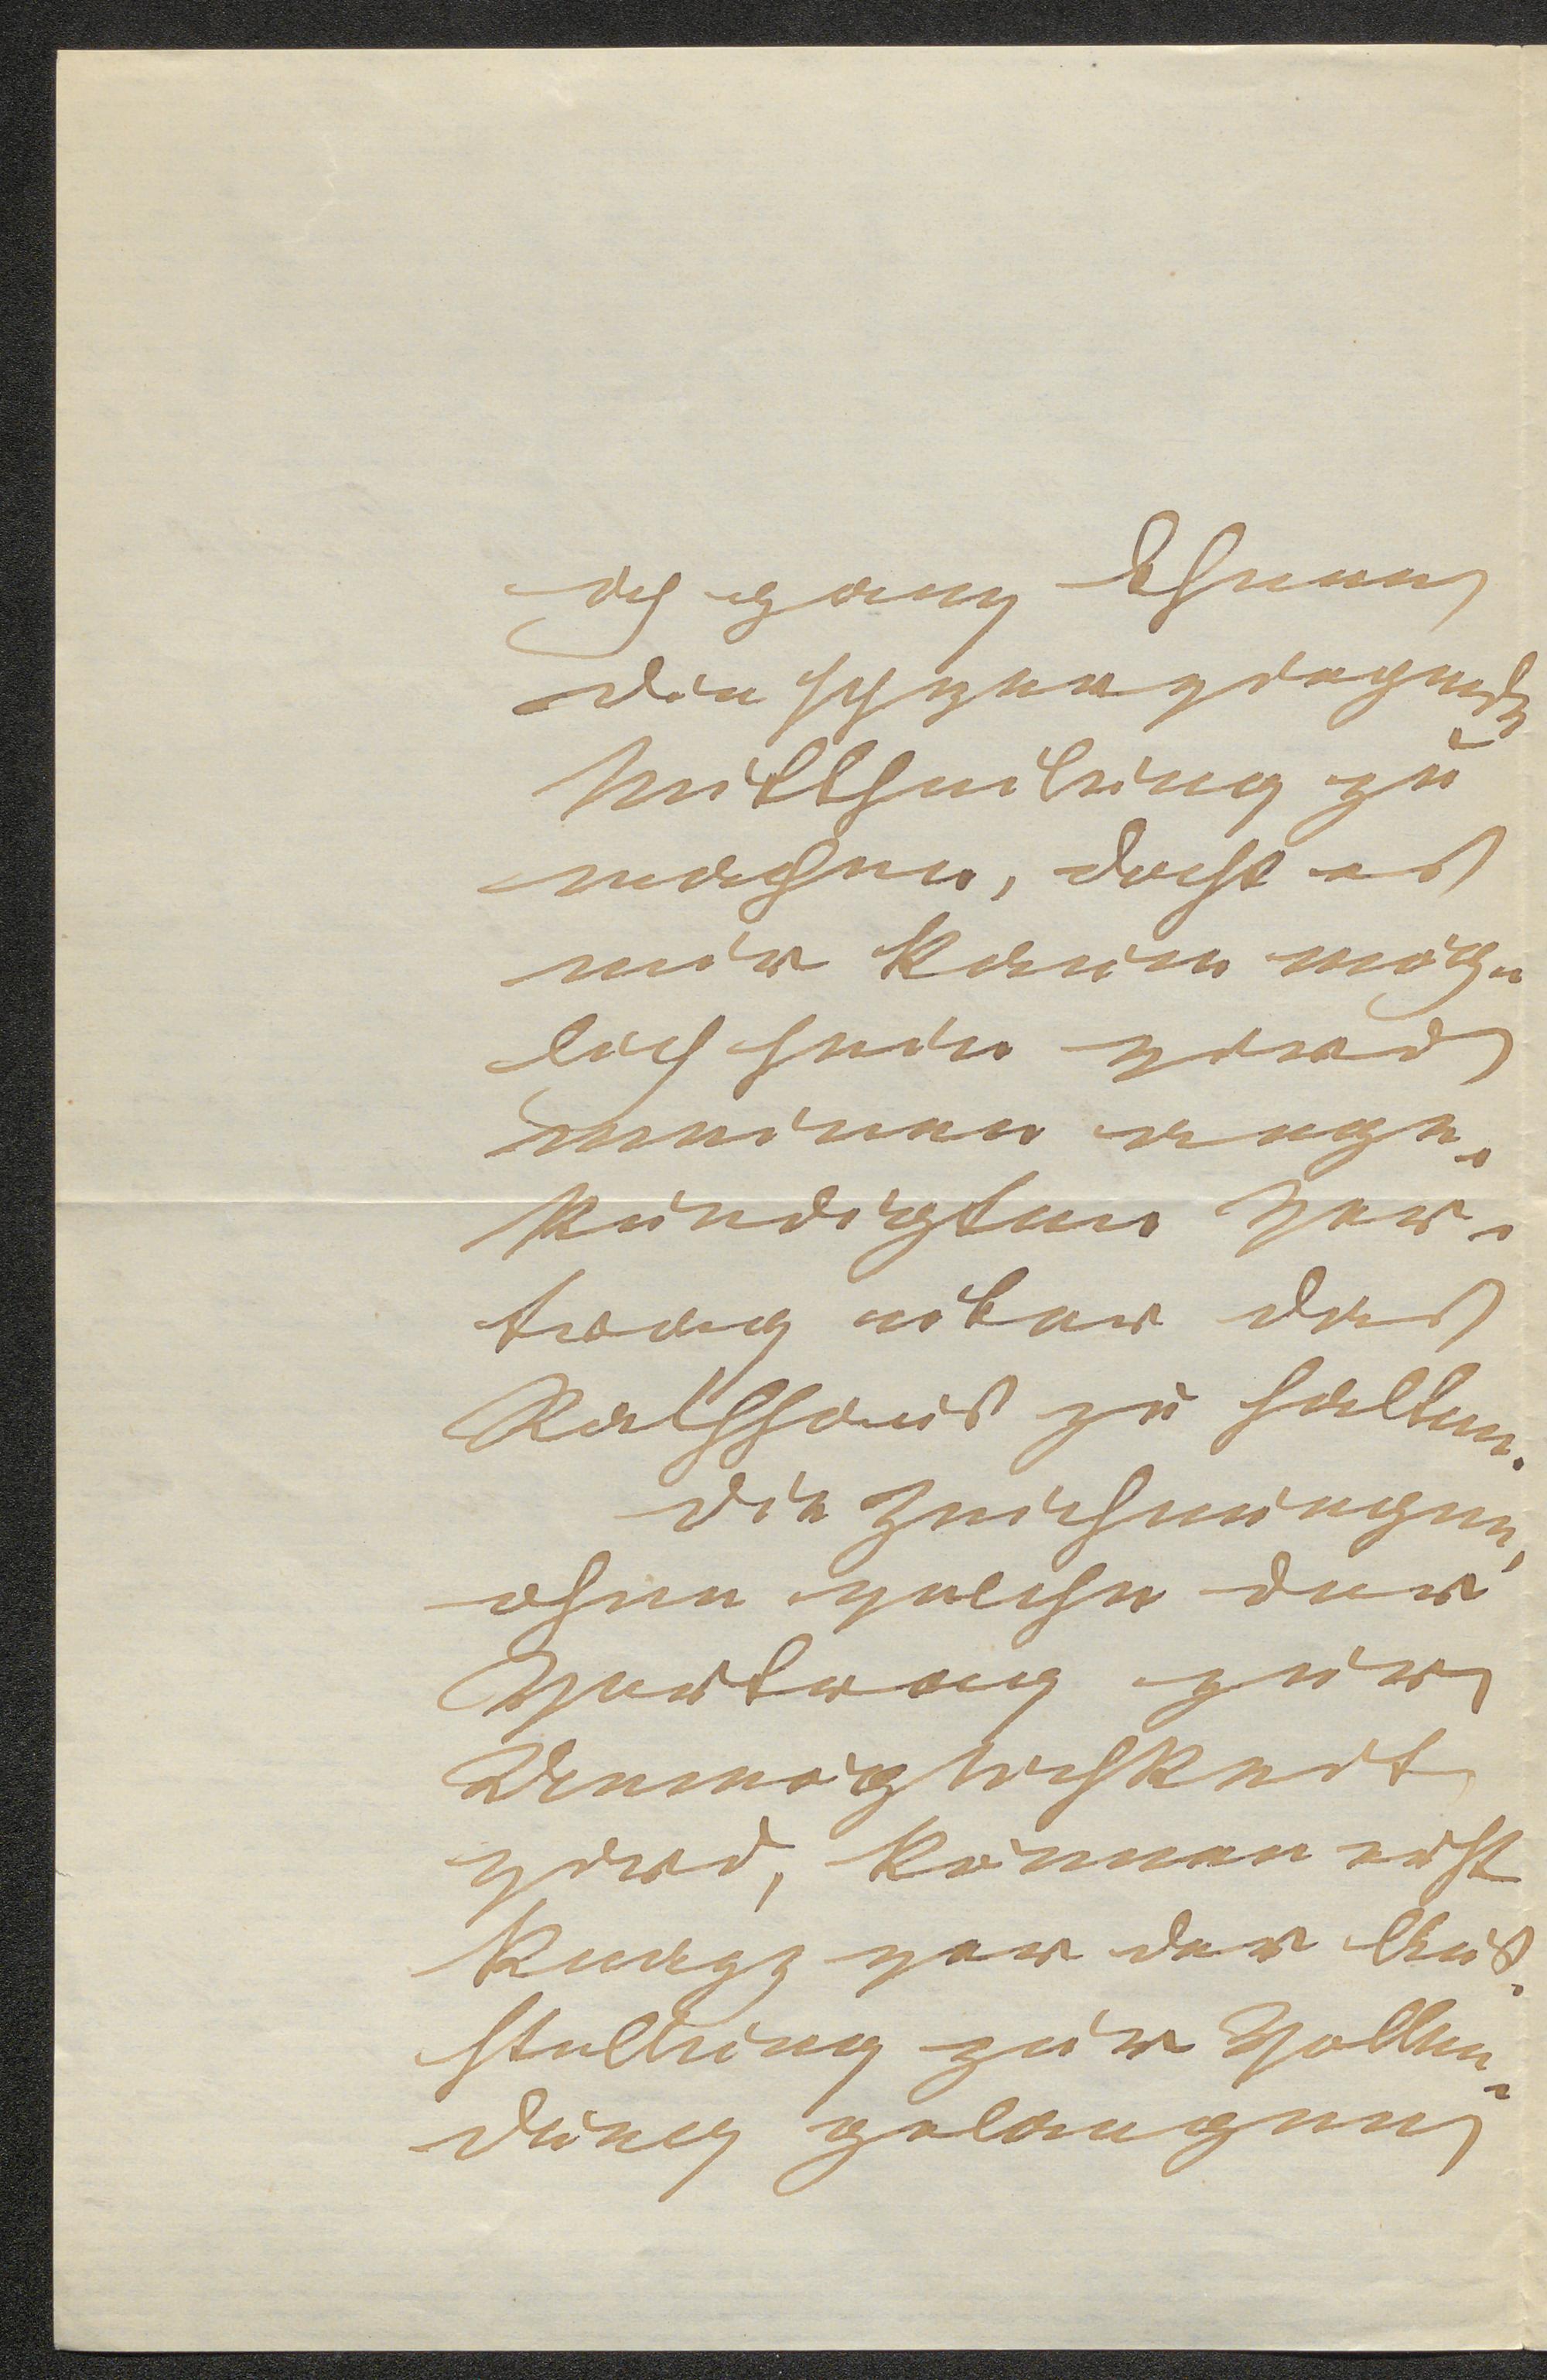 ich ganz Ihnen
die schwerwiegende
Mittheilung zu
machen, dasß es
mir kaum mög-
lich sein wird
meinen ange-
kündigten Vor-
trag über das
Rathhaus zu halten.
Die Zeichnungen,
ohne welche der
Vortrag zur
Unmöglichkeit
wird, können erst
kurz vor der Aus-
stellung zur Vollen-
dung gelangen